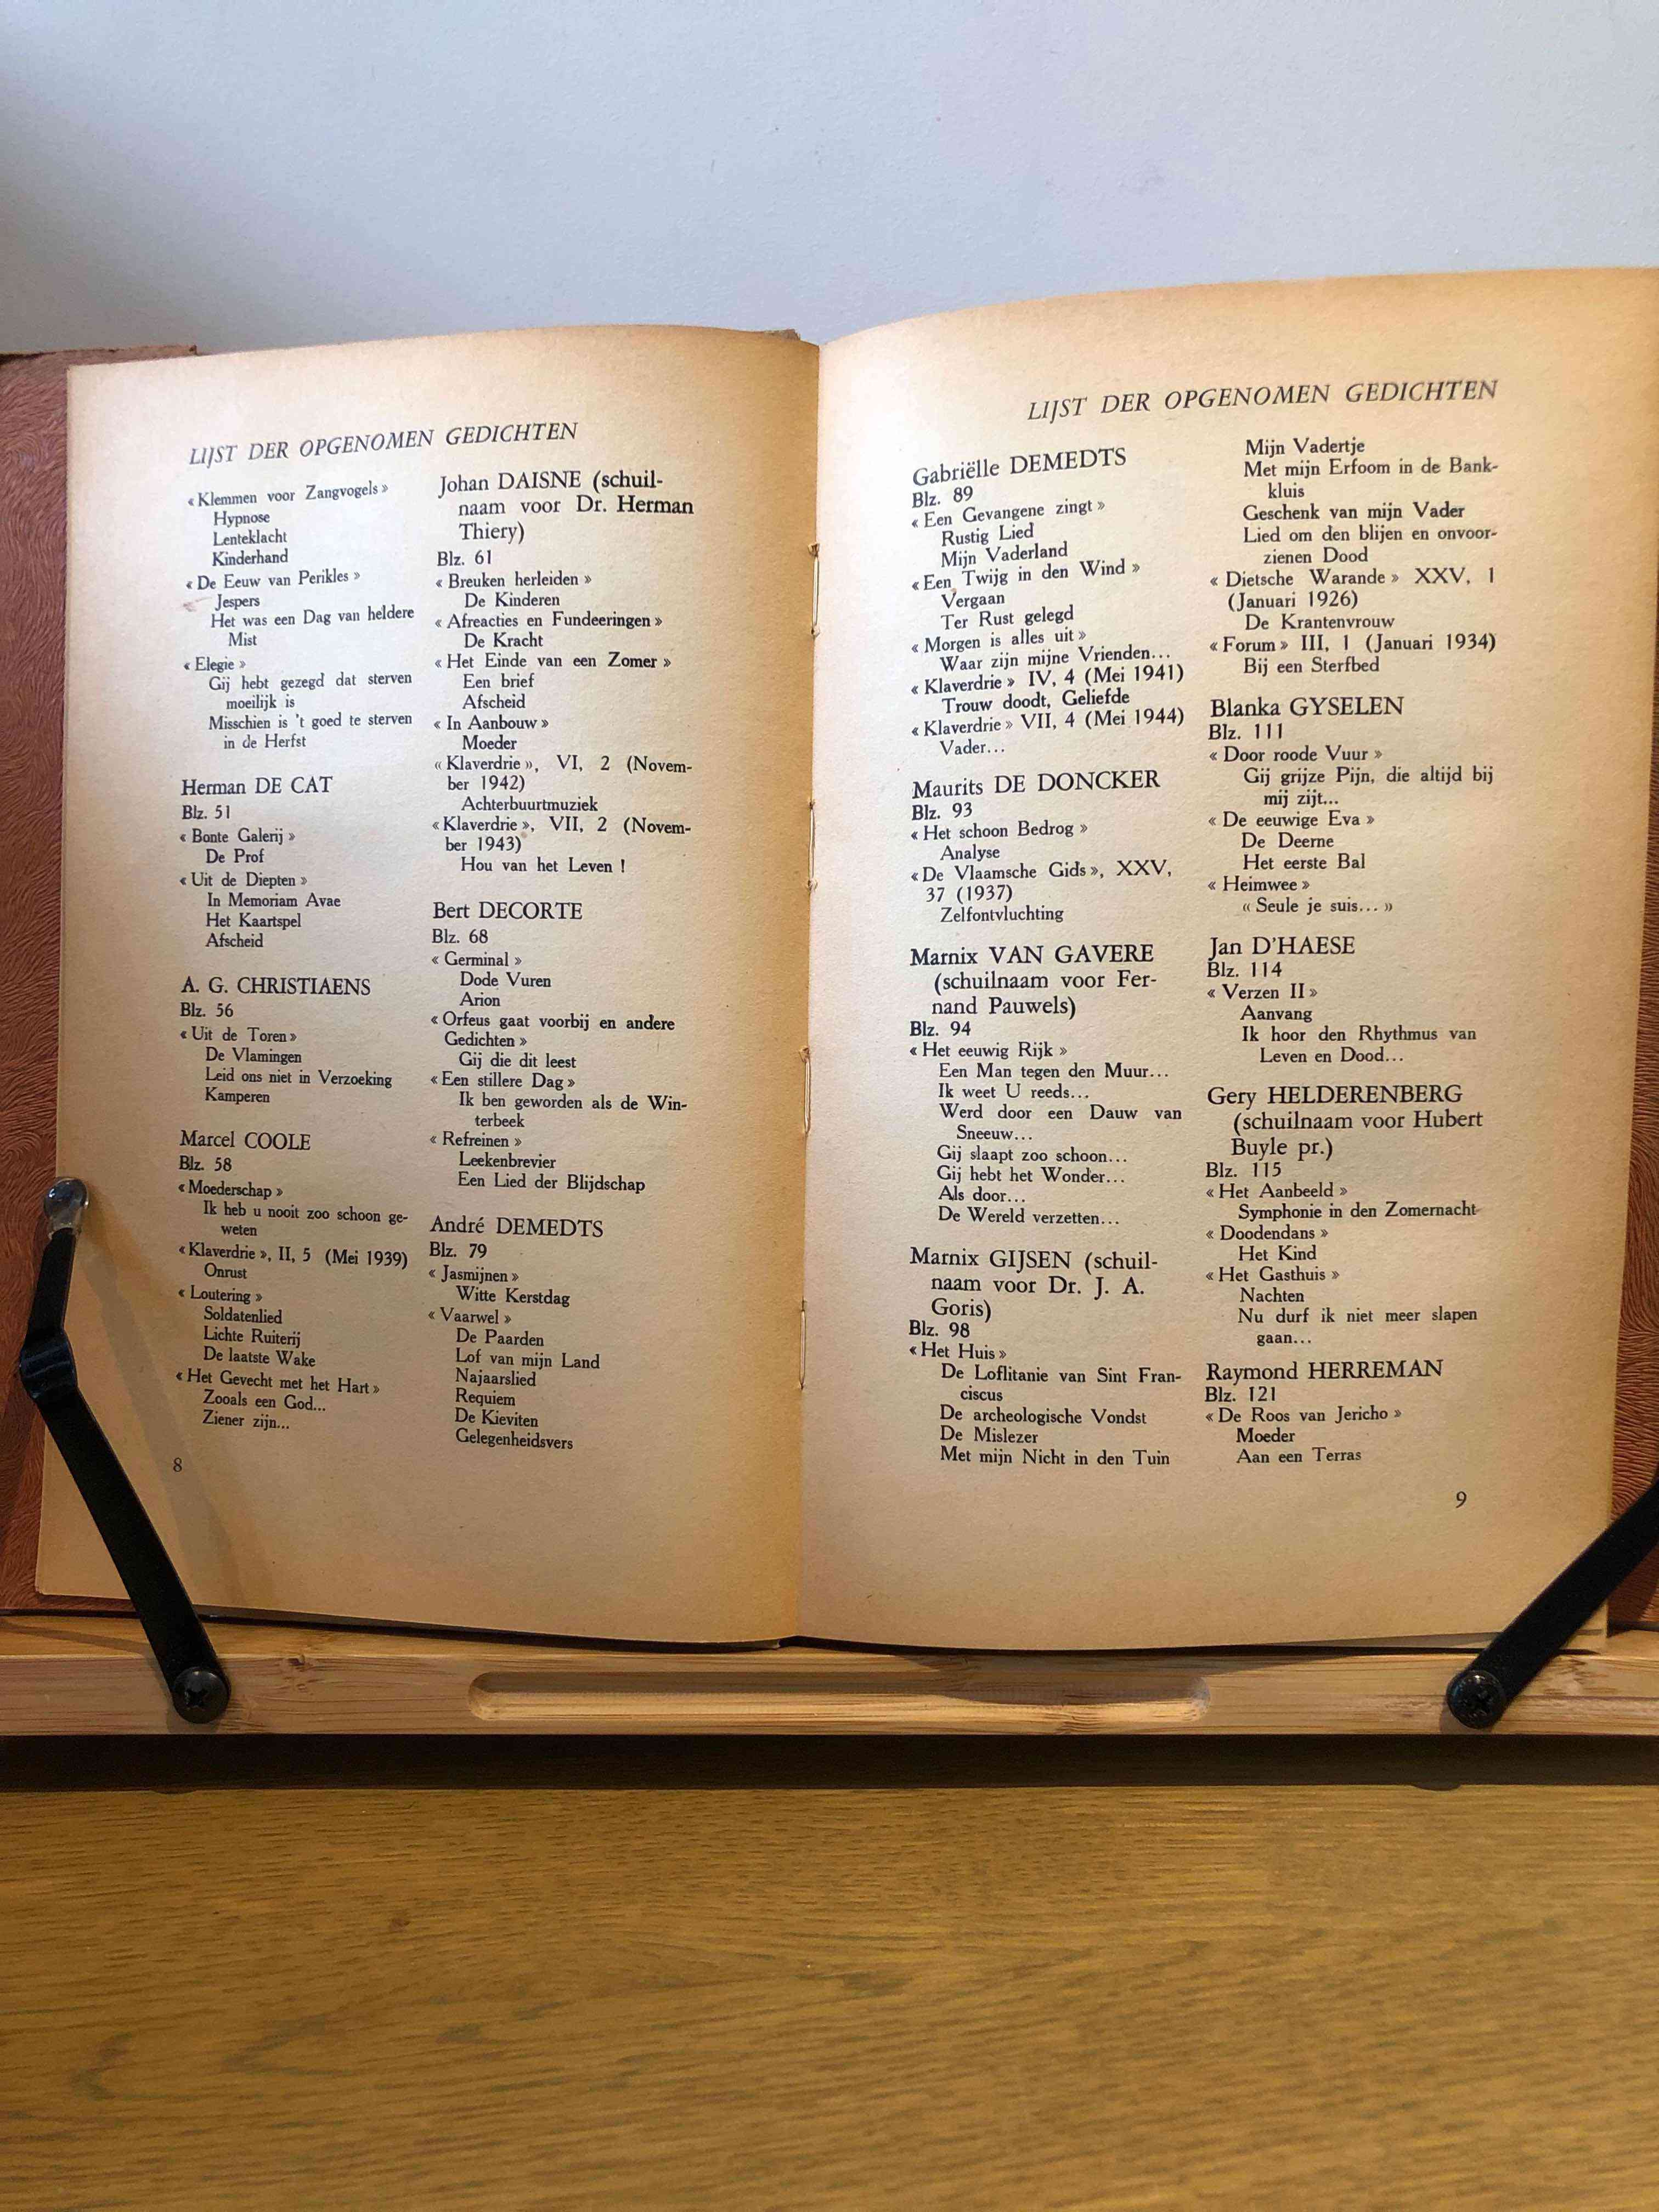 LIJST DER OPGENOMEN GEDICHTEN
« Klemmen voor Zangvogels »
Hypnose
Lenteklacht
Kinderhand
« De Eeuw van Perikles »
Jespers
Het was een Dag van heldere
Mist
« Elegie »
Gij hebt gezegd dat sterven
moeilijk is
Misschien is 't goed te sterven
in de Herfst
Herman DE CAT
Blz. 51
« Bonte Galerij »
De Prof
« Uit de Diepten »
In Memoriam Avae
Het Kaartspel
Afscheid
A. G. CHRISTIAENS
Blz. 56
« Uit de Toren »
De Vlamingen
Leid ons niet in Verzoeking
Kamperen
Marcel COOLE
Blz. 58
« Moederschap »
Ik heb u nooit zoo schoon ge-
weten
« Klaverdrie », II, 5 (Mei 1939)
Onrust
« Loutering »
Soldatenlied
Lichte Ruiterij
De laatste Wake
« Het Gevecht met het Hart »
Zooals een God...
Ziener zijn...
8
Johan DAISNE (schuil-
naam voor Dr. Herman
Thiery)
Blz. 61
« Breuken herleiden »
De Kinderen
« Afreacties en Fundeeringen »
De Kracht
« Het Einde van een Zomer »
Een brief
Afscheid
« In Aanbouw »
Moeder
« Klaverdrie », VI, 2 (Novem-
ber 1942)
Achterbuurtmuziek
« Klaverdrie », VII, 2 (Novem-
ber 1943)
Hou van het Leven !
Bert DECORTE
Blz. 68
« Germinal »
Dode Vuren
Arion
« Orfeus gaat voorbij en andere
Gedichten »
Gij die dit leest
« Een stillere Dag »
Ik ben geworden als de Win-
terbeek
« Refreinen »
Leekenbrevier
Een Lied der Blijdschap
André DEMEDTS
Blz. 79
« Jasmijnen »
Witte Kerstdag
« Vaarwel »
De Paarden
Lof van mijn Land
Najaarslied
Requiem
De Kieviten
Gelegenheidsvers
LIJST DER OPGENOMEN GEDICHTEN
Gabriëlle DEMEDTS
Blz. 89
« Een Gevangene zingt »
Rustig Lied
Mijn Vaderland
« Een Twijg in den Wind »
Vergaan
Ter Rust gelegd
« Morgen is alles uit »
Waar zijn mijne Vrienden...
« Klaverdrie » IV, 4 (Mei 1941)
Trouw doodt, Geliefde
« Klaverdrie » VII, 4 (Mei 1944)
Vader...
Maurits DE DONCKER
Blz. 93
« Het schoon Bedrog »
Analyse
« De Vlaamsche Gids », XXV,
37 (1937)
Zelfontvluchting
Marnix VAN GAVERE
(schuilnaam voor Fer-
nand Pauwels)
Blz. 94
« Het eeuwig Rijk »
Een Man tegen den Muur...
Ik weet U reeds...
Werd door een Dauw van
Sneeuw...
Gij slaapt zoo schoon...
Gij hebt het Wonder...
Als door...
De Wereld verzetten...
Marnix GIJSEN (schuil-
naam voor Dr. J. A.
Goris)
Blz. 98
« Het Huis »
De Loflitanie van Sint Fran-
ciscus
De archeologische Vondst
De Mislezer
Met mijn Nicht in den Tuin
Mijn Vadertje
Met mijn Erfoom in de Bank-
kluis
Geschenk van mijn Vader
Lied om den blijen en onvoor-
zienen Dood
« Dietsche Warande » XXV, 1
(Januari 1926)
De Krantenvrouw
« Forum » III, 1 (Januari 1934)
Bij een Sterfbed
Blanka GYSELEN
Blz. 111
« Door roode Vuur »
Gij grijze Pijn, die altijd bij
mij zijt...
« De eeuwige Eva »
De Deerne
Het eerste Bal
« Heimwee »
« Seule je suis... »
Jan D'HAESE
Blz. 114
« Verzen II »
Aanvang
Ik hoor den Rhythmus van
Leven en Dood...
Gery HELDERENBERG
(schuilnaam voor Hubert
Buyle pr.)
Blz. 115
« Het Aanbeeld »
Symphonie in den Zomernacht
« Doodendans »
Het Kind
« Het Gasthuis »
Nachten
Nu durf ik niet meer slapen
gaan...
Raymond HERREMAN
Blz. 121
« De Roos van Jericho »
Moeder
Aan een Terras
9